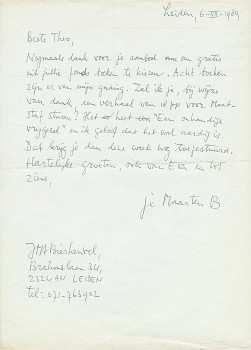 Leiden, 6-VI-1989
Beste Theo,
Nogmaals dank voor je aanbod om om gratis
uit jullie fonds boeken te kiezen. Acht boeken
zijn er van mijn gading. Zal ik je, bij wijze
van dank, een verhaal van 18 pp voor Maat-
staf sturen? Het heet "Een onhandige
vrijgezel" en ik geloof dat het wel aardig is.
Dat krijg je dan deze week nog toegestuurd.
Hartelijke groeten, ook van Eva en tot
ziens,
je Maarten B
JMA Biesheuvel,
Brahmslaan 34,
2324 AN LEIDEN
tel: 071-763902